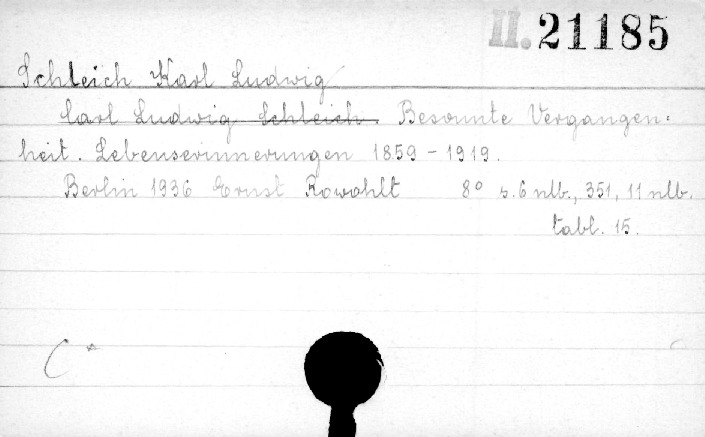 II. 21185
Schleich Karl Ludwig
Carl Ludwig Schleich Besonnte Vergangen-
heit. Lebenserinnerungen 1859 - 1919.
Berlin 1936 Ernst Rowohlt 8° s. 6 nlb., 351, 11 nlb.
tabl. 15.
C *